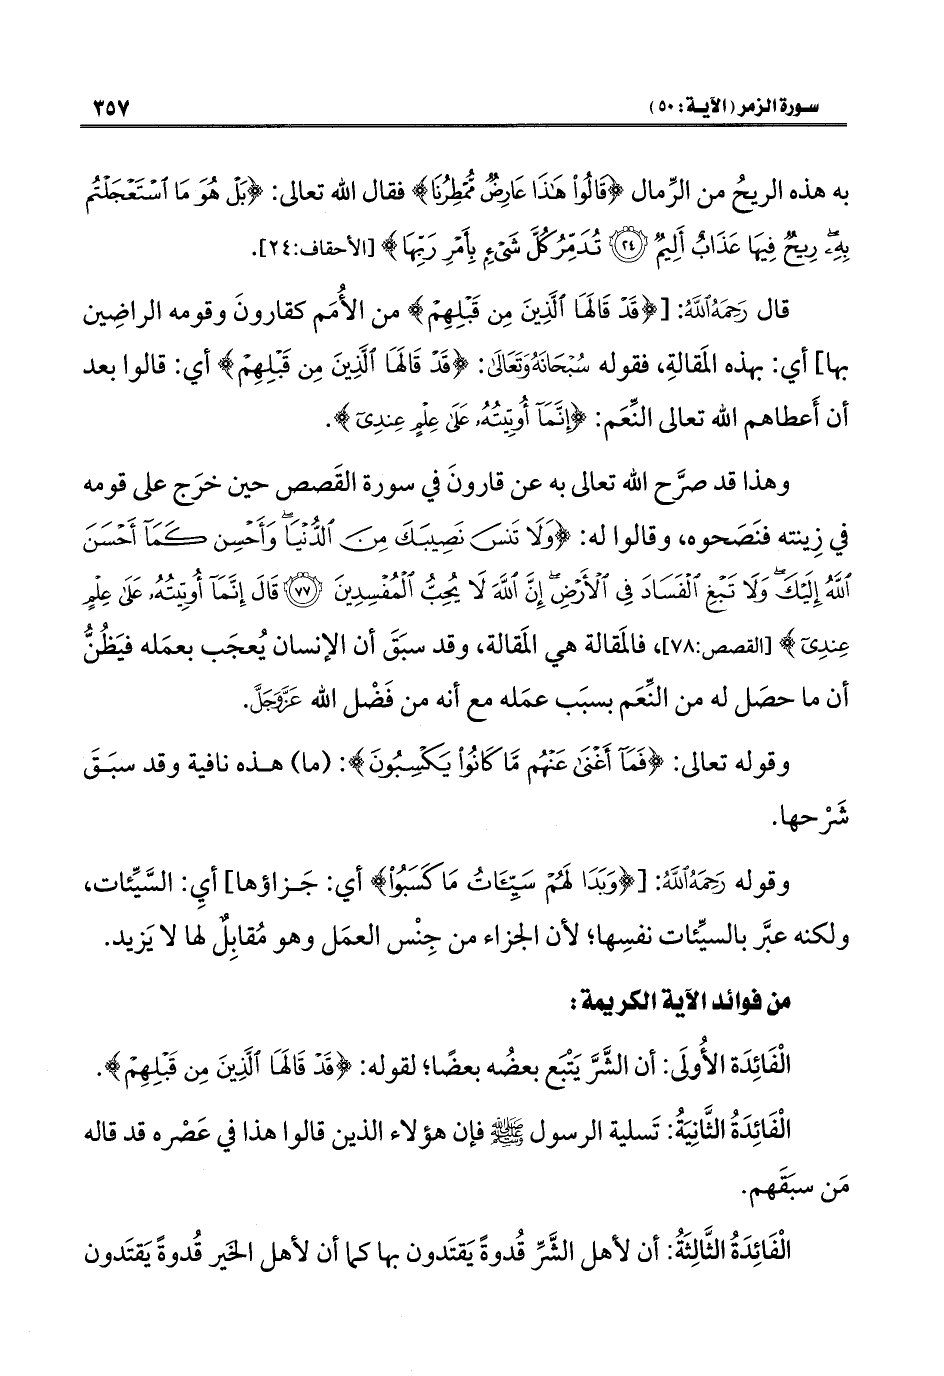 سورة الزمر (الآية: ٥٠) ٣٥٧
به هذه الريحُ من الرِّمال ﴿قَالُوا۟ هَٰذَا عَارِضٌ مُّمْطِرُنَا﴾ فقال الله تعالى: ﴿بَلْ هُوَ مَا ٱسْتَعْجَلْتُم
بِهِۦ ۖ رِيحٌ فِيهَا عَذَابٌ أَلِيمٌ ﴿٢٤﴾ تُدَمِّرُ كُلَّ شَىْءٍۭ بِأَمْرِ رَبِّهَا﴾ [الأحقاف:٢٤].
قال رَحِمَهُ ٱللَّهُ: [﴿قَدْ قَالَهَا ٱلَّذِينَ مِن قَبْلِهِمْ﴾ من الأُمَم كقارونَ وقومه الراضِين
بها] أي: بهذه المَقالةِ، فقوله سُبْحَانَهُ وَتَعَالَى: ﴿قَدْ قَالَهَا ٱلَّذِينَ مِن قَبْلِهِمْ﴾ أي: قالوا بعد
أن أَعطاهم الله تعالى النِّعَم: ﴿إِنَّمَآ أُوتِيتُهُۥ عَلَىٰ عِلْمٍ عِندِىٓ﴾.
وهذا قد صرَّح الله تعالى به عن قارونَ في سورة القَصص حين خرَج على قومه
في زِينته فنَصَحوه، وقالوا له: ﴿وَلَا تَنسَ نَصِيبَكَ مِنَ ٱلدُّنْيَا ۖ وَأَحْسِن كَمَآ أَحْسَنَ
ٱللَّهُ إِلَيْكَ ۖ وَلَا تَبْغِ ٱلْفَسَادَ فِى ٱلْأَرْضِ ۖ إِنَّ ٱللَّهَ لَا يُحِبُّ ٱلْمُفْسِدِينَ ﴿٧٧﴾ قَالَ إِنَّمَآ أُوتِيتُهُۥ عَلَىٰ عِلْمٍ
عِندِىٓ﴾ [القصص:٧٨]، فالمَقالة هي المَقالة، وقد سبَقَ أن الإنسان يُعجَب بعمَله فيَظُنُّ
أن ما حصَل له من النِّعَم بسبَب عمَله مع أنه من فَضْل الله عَزَّوَجَلَّ.
وقوله تعالى: ﴿فَمَآ أَغْنَىٰ عَنْهُم مَّا كَانُوا۟ يَكْسِبُونَ﴾: (ما) هذه نافية وقد سبَقَ
شَرْحها.
وقوله رَحِمَهُ ٱللَّهُ: [﴿وَبَدَا لَهُمْ سَيِّـَٔاتُ مَا كَسَبُوا۟﴾ أي: جَزاؤها] أيِ: السَّيِّئات،
ولكنه عبَّر بالسيِّئات نفسِها؛ لأن الجزاء من جِنْس العمَل وهو مُقابِلٌ لها لا يَزيد.
من فوائد الآية الكريمة:
الْفَائِدَة الأُولَى: أن الشَّرَّ يَتْبَع بعضُه بعضًا؛ لقوله: ﴿قَدْ قَالَهَا ٱلَّذِينَ مِن قَبْلِهِمْ﴾.
الْفَائِدَةُ الثَّانِيَةُ: تَسلية الرسول ﷺ فإن هؤلاء الذين قالوا هذا في عَصْره قد قاله
مَن سبَقَهم.
الْفَائِدَةُ الثَّالِثَةُ: أن لأهل الشَّرِّ قُدوةً يَقتَدون بها كما أن لأهل الخير قُدوةً يَقتَدون